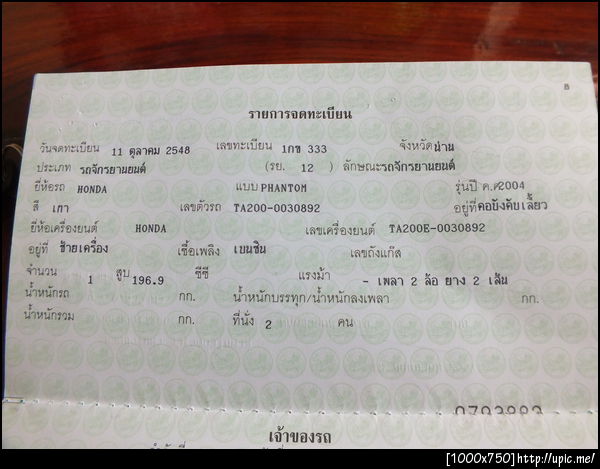 B
รายการจดทะเบียน
วันจดทะเบียน 11 ตุลาคม 2548 เลขทะเบียน 1กข 333 จังหวัด น่าน
ประเภท รถจักรยานยนต์ (รย. 12 ) ลักษณะ รถจักรยานยนต์
ยี่ห้อรถ HONDA แบบ PHANTOM รุ่นปี ค.ศ2004
สี เทา เลขตัวรถ TA200-0030892 อยู่ที่ คอบังคับเลี้ยว
ยี่ห้อเครื่องยนต์ HONDA เลขเครื่องยนต์ TA200E-0030892
อยู่ที่ ซ้ายเครื่อง เชื้อเพลิง เบนซิน เลขถังแก๊ส
จำนวน 1 สูบ 196.9 ซีซี แรงม้า - เพลา 2 ล้อ ยาง 2 เส้น
น้ำหนักรถ กก. น้ำหนักบรรทุก/น้ำหนักลงเพลา กก.
น้ำหนักรวม กก. ที่นั่ง 2 คน
เจ้าของรถ
[1000x750]http://upic.me/